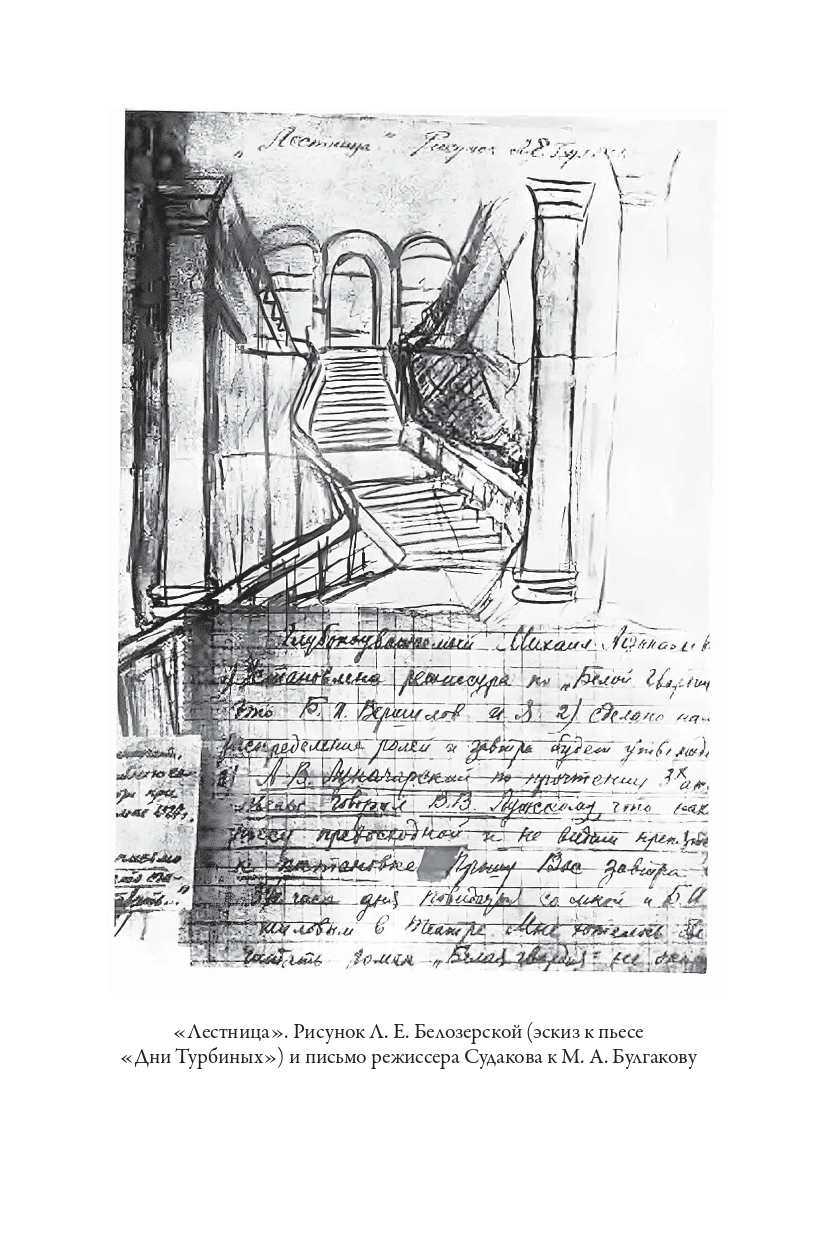 „Лестница“. Рисунок Л.Е.
Глубокоуважаемый Михаил Афанасьев
1) Установлена режиссура по „Белой гвардии
это Б. И. Вершилов и Я 2) сделано на
распределение ролей и завтра будет утвержд
3) А. В. Луначарский по прочтении 3х ак
говорил В.В. Лужскому, что
пьесу превосходной и не видит препятс
к постановке Прошу Вас завтра
часа дня повидаться со мной и Б И
шиловым в Театре Мне хотелось бы
читать роман „Белая гвардия“ не
«Лестница». Рисунок Л. Е. Белозерской (эскиз к пьесе
«Дни Турбиных») и письмо режиссера Судакова к М. А. Булгакову